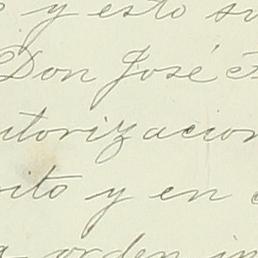 y esto su
Don José é
utorizacion
ito y en
orden in